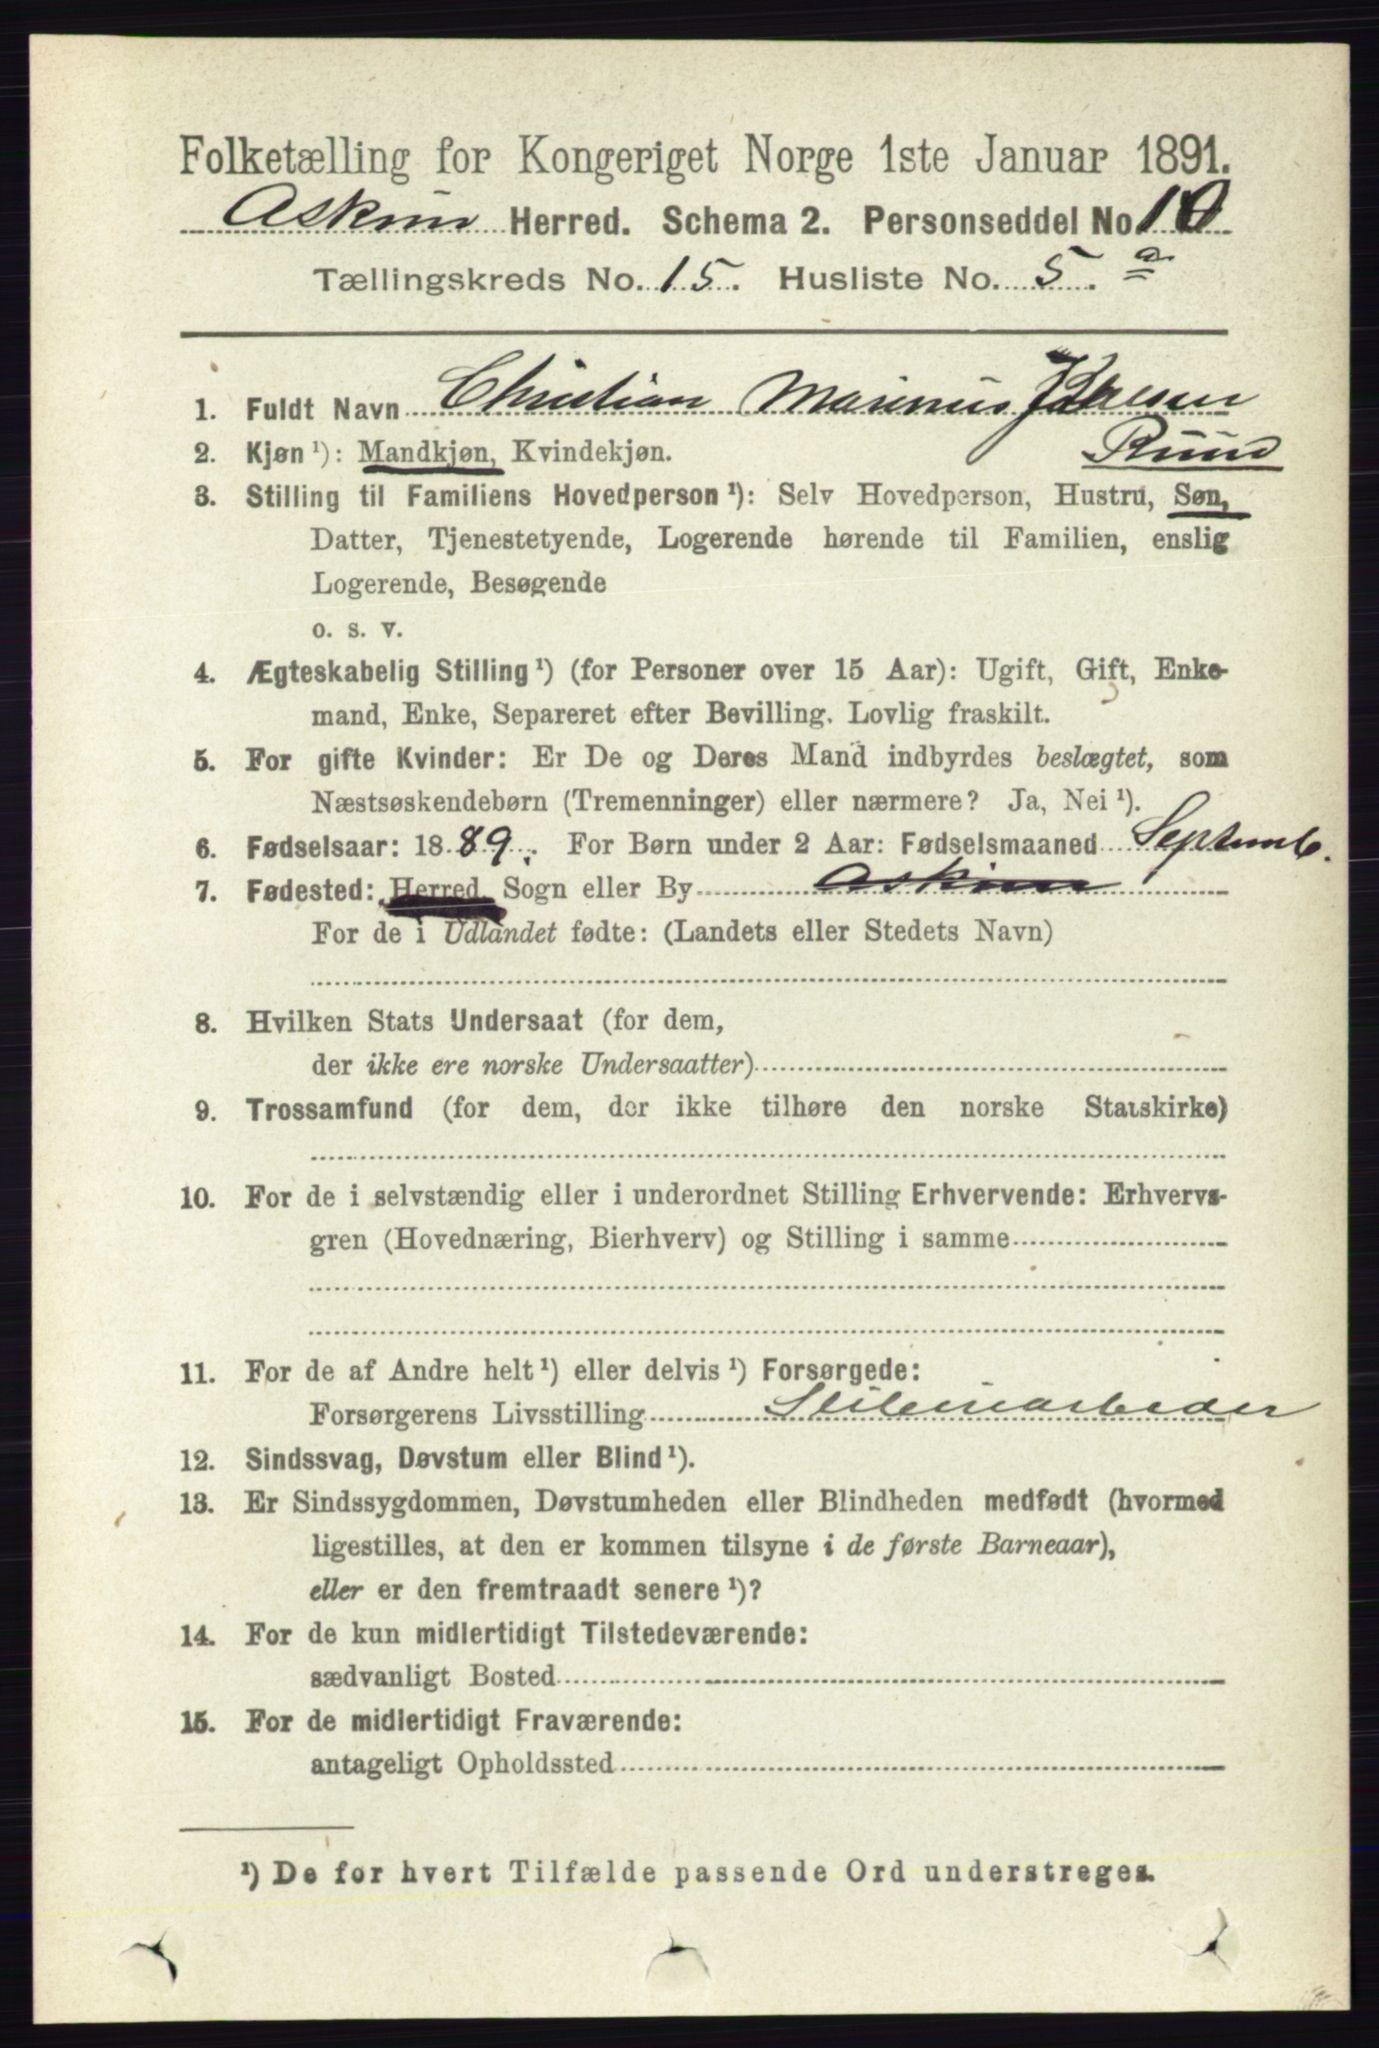 Folketælling for Kongeriget Norge 1ste Januar 1891.
Askim Herred. Schema 2. Personseddel No. 10
Tællingskreds No. 15. Husliste No. 5. a
1. Fuldt Navn Christian Marinus
Ruud
2. Kjøn ¹): Mandkjøn, Kvindekjøn.
3. Stilling til Familiens Hovedperson ¹): Selv Hovedperson, Hustru, Søn,
Datter, Tjenestetyende, Logerende hørende til Familien, enslig
Logerende, Besøgende
o. s. v.
4. Ægteskabelig Stilling ¹) (for Personer over 15 Aar): Ugift, Gift, Enke-
mand, Enke, Separeret efter Bevilling. Lovlig fraskilt.
5. For gifte Kvinder: Er De og Deres Mand indbyrdes beslægtet, som
Næstsøskendebørn (Tremenninger) eller nærmere? Ja, Nei ¹).
6. Fødselsaar: 1889. For Børn under 2 Aar: Fødselsmaaned Septemb.
7. Fødested: Herred, Sogn eller By Askim
For de i Udlandet fødte: (Landets eller Stedets Navn)
8. Hvilken Stats Undersaat (for dem,
der ikke ere norske Undersaatter)
9. Trossamfund (for dem, der ikke tilhøre den norske Statskirke)
10. For de i selvstændig eller i underordnet Stilling Erhvervende: Erhvervs-
gren (Hovednæring, Bierhverv) og Stilling i samme
11. For de af Andre helt ¹) eller delvis ¹) Forsørgede:
Forsørgerens Livsstilling
12. Sindssvag, Døvstum eller Blind ¹).
13. Er Sindssygdommen, Døvstumheden eller Blindheden medfødt (hvormed
ligestilles, at den er kommen tilsyne i de første Barneaar),
eller er den fremtraadt senere ¹)?
14. For de kun midlertidigt Tilstedeværende:
sædvanligt Bosted
15. For de midlertidigt Fraværende:
antageligt Opholdssted
¹) De for hvert Tilfælde passende Ord understreges.